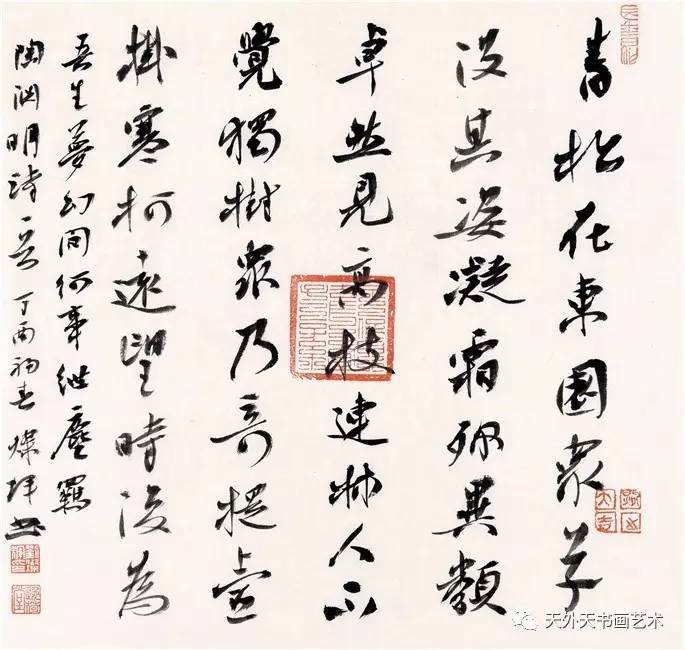 青松在東園衆草
没其姿凝霜殄異類
卓然見高枝連林人不
覺獨樹衆乃奇提壺
掛寒柯遠望時復為
吾生夢幻間何事紲塵羈
陶渊明詩一首丁酉初春燦拜書
天外天书画艺术